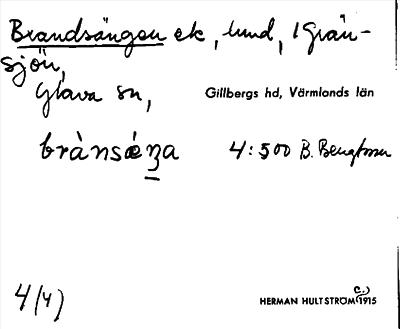 Brandsängen ek, lund, i Grän-
sjön,
Glava sn, Gillbergs hd, Värmlands län
brànsæŋa 4:500 B. Bengtsson
4(4)
HERMAN HULTSTRÖM (C.) 1915